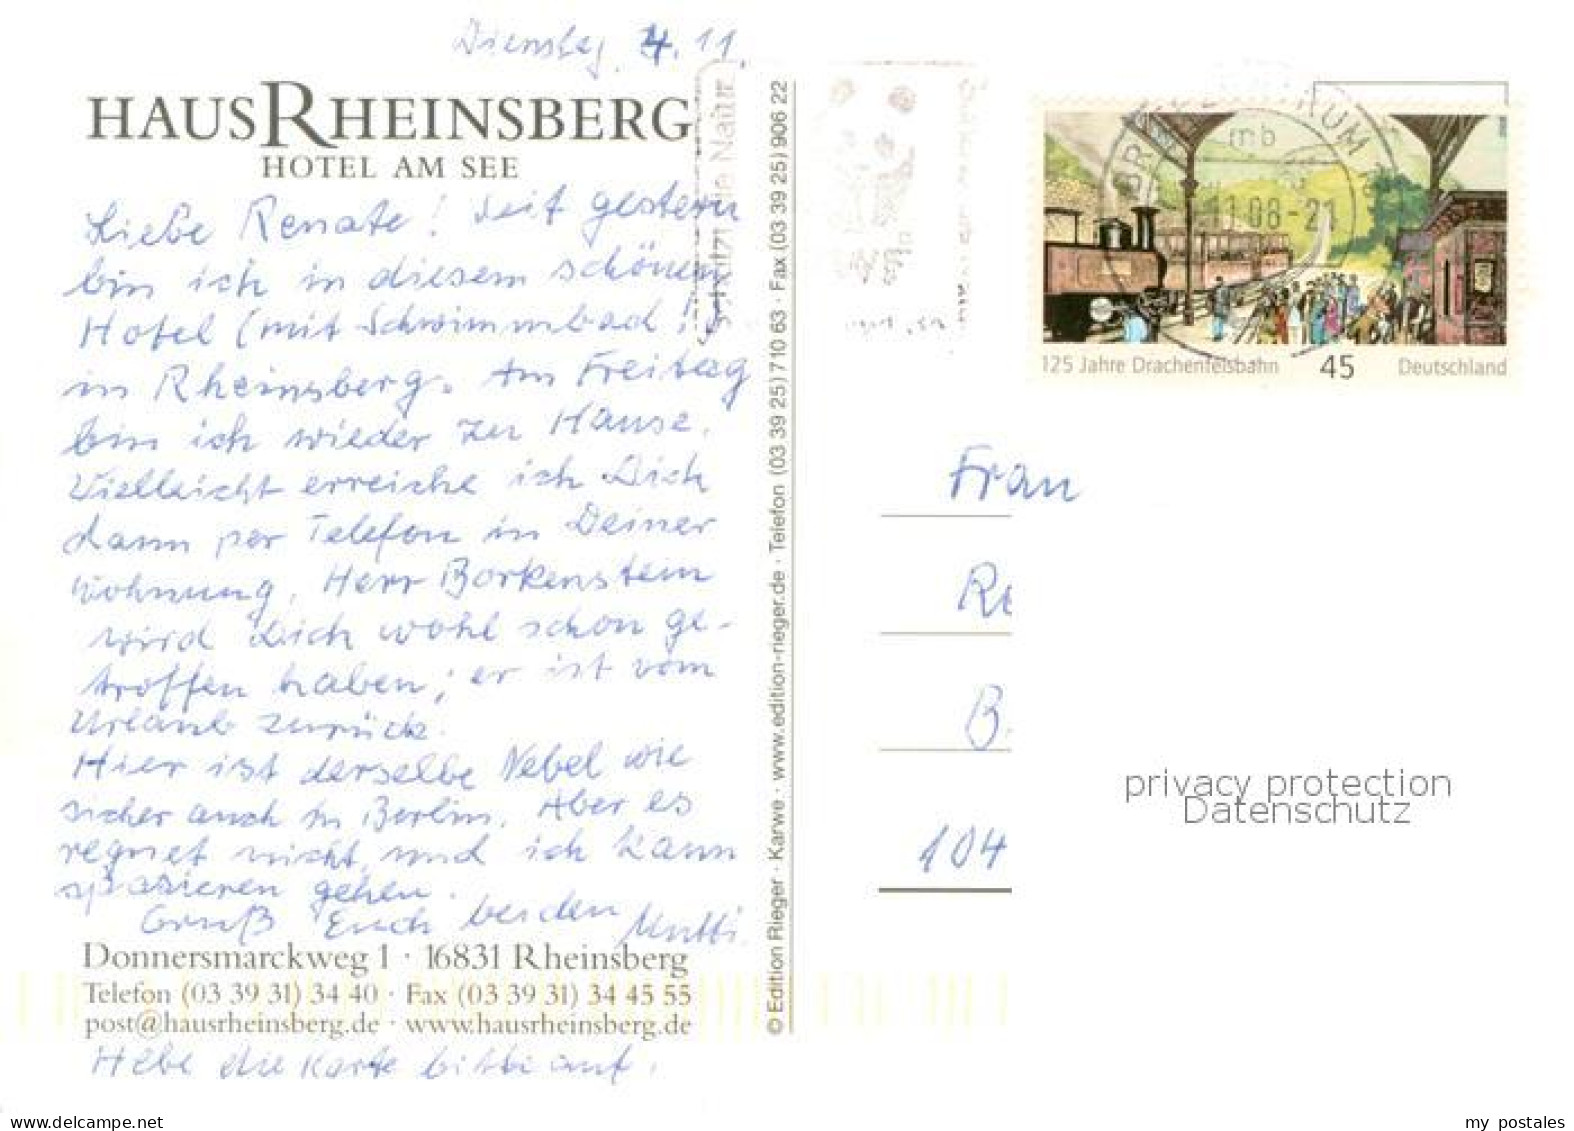 Dienstag, 4.11.
HAUS RHEINSBERG
HOTEL AM SEE
Liebe Renate! Seit gestern
bin ich in diesem schönen
Hotel (mit Schwimmbad!)
in Rheinsberg. Am Freitag
bin ich wieder zu Hause.
Vielleicht erreiche ich Dich
dann per Telefon in Deiner
Wohnung. Herr Borkenstein
wird Dich wohl schon ge-
troffen haben; er ist vom
Urlaub zurück.
Hier ist derselbe Nebel wie
sicher auch in Berlin. Aber es
regnet nicht, und ich kann
spazieren gehen.
Gruß Euch beiden Mutti.
Donnersmarckweg 1 · 16831 Rheinsberg
Telefon (03 39 31) 34 40 · Fax (03 39 31) 34 45 55
post@hausrheinsberg.de · www.hausrheinsberg.de
Hebe die Karte bitte auf.
© Edition Rieger · Karwe · www.edition-rieger.de · Telefon (03 39 25) 7 10 63 · Fax (03 39 25) 906 22
Natur
BR
mb
11.08-21
125 Jahre Drachenfelsbahn 45 Deutschland
Frau
Re
B.
104
privacy protection
Datenschutz
www.delcampe.net
my_postales